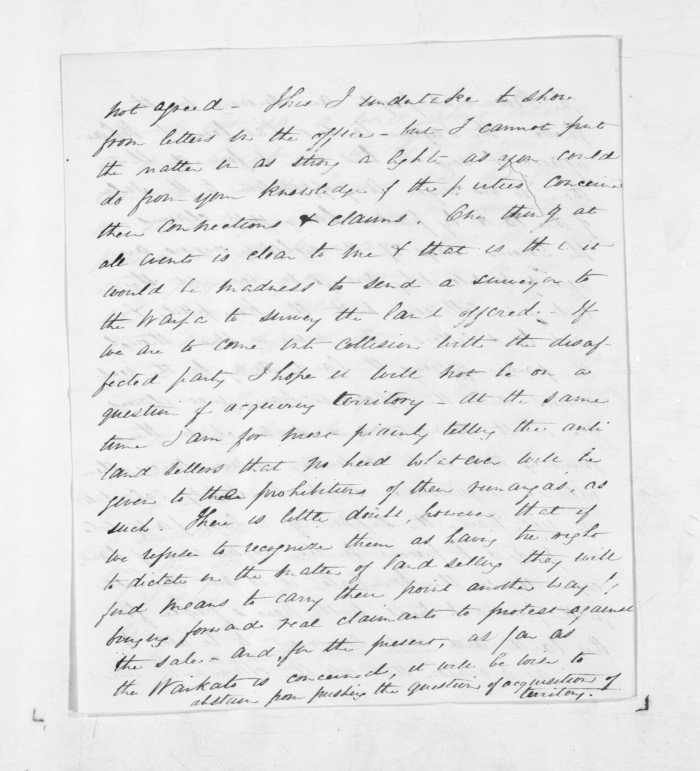 not agreed - This I undertake to show
from letters in the office - but I cannot put
the matter in as strong a light as you could
do from your knowledge of the parties concerned
their connections & claims. One thing at
all events is clear to me & that is that it
would be madness to send a surveyor to
the Waipa to survey the land offered - If
we are to come into collision with the disaf-
fected party I hope it will not be on a
question of acquiring territory - At the same
time I am for most plainly telling the anti
land sellers that no heed whatever will be
given to the prohibitions of their runangas, as
such. There is little doubt, however that if
we refuse to recognize them as having the right
to dictate in the matter of land selling they will
find means to carry their point another way by
bringing forward real claimants to protest against
the sale - and, for the present, as far as
the Waikato is concerned, it will be wise to
abstain from pushing the question of acquisitions of
territory.